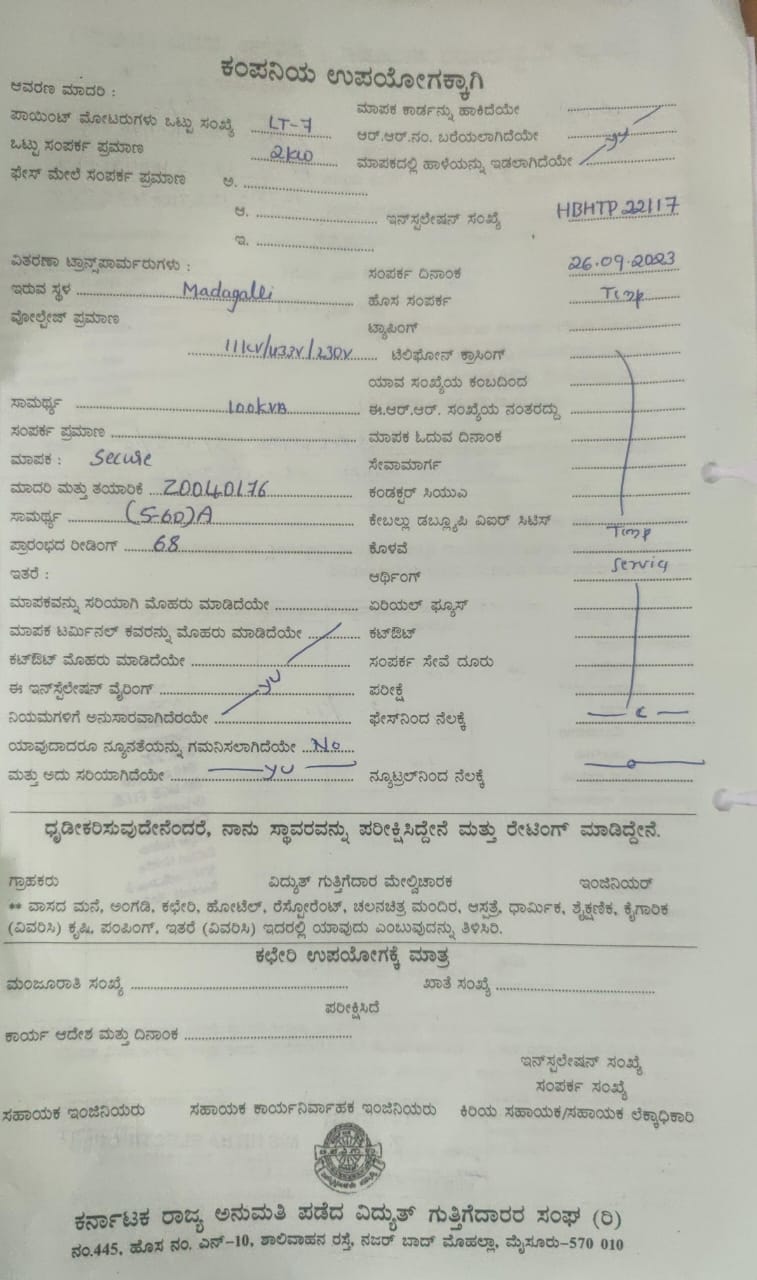 ಕಂಪನಿಯ ಉಪಯೋಗಕ್ಕಾಗಿ
ಆವರಣ ಮಾದರಿ :
ಮಾಪಕ ಕಾರ್ಡನ್ನು ಹಾಕಿದೆಯೇ
ಪಾಯಿಂಟ್ ಮೋಟರುಗಳು ಒಟ್ಟು ಸಂಖ್ಯೆ LT-7
ಆರ್.ಆರ್.ನಂ. ಬರೆಯಲಾಗಿದೆಯೇ
ಒಟ್ಟು ಸಂಪರ್ಕ ಪ್ರಮಾಣ 2KW
ಮಾಪಕದಲ್ಲಿ ಹಾಳೆಯನ್ನು ಇಡಲಾಗಿದೆಯೇ
ಫೇಸ್ ಮೇಲೆ ಸಂಪರ್ಕ ಪ್ರಮಾಣ ಅ.
ಆ. ಇನ್‌ಸ್ಪಲೇಷನ್ ಸಂಖ್ಯೆ HBHTP 22117
ಇ.
ವಿತರಣಾ ಟ್ರಾನ್ಸ್‌ಪಾರ್ಮರುಗಳು : ಸಂಪರ್ಕ ದಿನಾಂಕ 26.09.2023
ಇರುವ ಸ್ಥಳ Madagalli ಹೊಸ ಸಂಪರ್ಕ Temp
ವೋಲ್ಟೇಜ್ ಪ್ರಮಾಣ ಟ್ಯಾಪಿಂಗ್
11KV/433V/230V ಟೆಲಿಫೋನ್ ಕ್ರಾಸಿಂಗ್
ಯಾವ ಸಂಖ್ಯೆಯ ಕಂಬದಿಂದ
ಸಾಮರ್ಥ್ಯ 100KVA ಈ.ಆರ್.ಆರ್. ಸಂಖ್ಯೆಯ ನಂತರದ್ದು
ಸಂಪರ್ಕ ಪ್ರಮಾಣ ಮಾಪಕ ಓದುವ ದಿನಾಂಕ
ಮಾಪಕ : Secure ಸೇವಾಮಾರ್ಗ
ಮಾದರಿ ಮತ್ತು ತಯಾರಿಕೆ Z0040176 ಕಂಡಕ್ಟರ್ ಸಿಯುಎ
ಸಾಮರ್ಥ್ಯ (5-60)A ಕೇಬಲ್ಲು ಡಬ್ಲ್ಯೂಪಿ ಎಐರ್ ಸಿಟಿಸ್
ಪ್ರಾರಂಭದ ರೀಡಿಂಗ್ 68 ಕೊಳವೆ Temp
ಇತರೆ : ಆರ್ಥಿಂಗ್ Service
ಮಾಪಕವನ್ನು ಸರಿಯಾಗಿ ಮೊಹರು ಮಾಡಿದೆಯೇ ಏರಿಯಲ್ ಫ್ಯೂಸ್
ಮಾಪಕ ಟರ್ಮಿನಲ್ ಕವರನ್ನು ಮೊಹರು ಮಾಡಿದೆಯೇ ಕಟ್‌ಔಟ್
ಕಟ್‌ಔಟ್ ಮೊಹರು ಮಾಡಿದೆಯೇ ಸಂಪರ್ಕ ಸೇವೆ ದೂರು
ಈ ಇನ್‌ಸ್ಟೆಲೇಷನ್ ವೈರಿಂಗ್ ಪರೀಕ್ಷೆ
ನಿಯಮಗಳಿಗೆ ಅನುಸಾರವಾಗಿದೆರಯೇ ಫೇಸ್‌ನಿಂದ ನೆಲಕ್ಕೆ
ಯಾವುದಾದರೂ ನ್ಯೂನತೆಯನ್ನು ಗಮನಿಸಲಾಗಿದೆಯೇ No
ಮತ್ತು ಅದು ಸರಿಯಾಗಿದೆಯೇ ನ್ಯೂಟ್ರಲ್‌ನಿಂದ ನೆಲಕ್ಕೆ
ಧೃಡೀಕರಿಸುವುದೇನೆಂದರೆ, ನಾನು ಸ್ಥಾವರವನ್ನು ಪರೀಕ್ಷಿಸಿದ್ದೇನೆ ಮತ್ತು ರೇಟಿಂಗ್ ಮಾಡಿದ್ದೇನೆ.
ಗ್ರಾಹಕರು ವಿದ್ಯುತ್ ಗುತ್ತಿಗೆದಾರ ಮೇಲ್ವಿಚಾರಕ ಇಂಜಿನಿಯರ್
** ವಾಸದ ಮನೆ, ಅಂಗಡಿ, ಕಛೇರಿ, ಹೋಟೆಲ್, ರೆಸ್ಟೋರೆಂಟ್, ಚಲನಚಿತ್ರ ಮಂದಿರ, ಆಸ್ಪತ್ರೆ, ಧಾರ್ಮಿಕ, ಶೈಕ್ಷಣಿಕ, ಕೈಗಾರಿಕ
(ವಿವರಿಸಿ) ಕೃಷಿ, ಪಂಪಿಂಗ್, ಇತರೆ (ವಿವರಿಸಿ) ಇದರಲ್ಲಿ ಯಾವುದು ಎಂಬುವುದನ್ನು ತಿಳಿಸಿರಿ.
ಕಛೇರಿ ಉಪಯೋಗಕ್ಕೆ ಮಾತ್ರ
ಮಂಜೂರಾತಿ ಸಂಖ್ಯೆ ಖಾತೆ ಸಂಖ್ಯೆ
ಪರೀಕ್ಷಿಸಿದೆ
ಕಾರ್ಯ ಆದೇಶ ಮತ್ತು ದಿನಾಂಕ
ಇನ್‌ಸ್ಪಲೇಷನ್ ಸಂಖ್ಯೆ
ಸಂಪರ್ಕ ಸಂಖ್ಯೆ
ಸಹಾಯಕ ಇಂಜಿನಿಯರು ಸಹಾಯಕ ಕಾರ್ಯನಿರ್ವಾಹಕ ಇಂಜಿನಿಯರು ಕಿರಿಯ ಸಹಾಯಕ/ಸಹಾಯಕ ಲೆಕ್ಕಾಧಿಕಾರಿ
ಕರ್ನಾಟಕ ರಾಜ್ಯ ಅನುಮತಿ ಪಡೆದ ವಿದ್ಯುತ್ ಗುತ್ತಿಗೆದಾರರ ಸಂಘ (ರಿ)
ನಂ.445, ಹೊಸ ನಂ. ಎನ್-10, ಶಾಲಿವಾಹನ ರಸ್ತೆ, ನಜರ್ ಬಾದ್ ಮೊಹಲ್ಲಾ, ಮೈಸೂರು-570 010